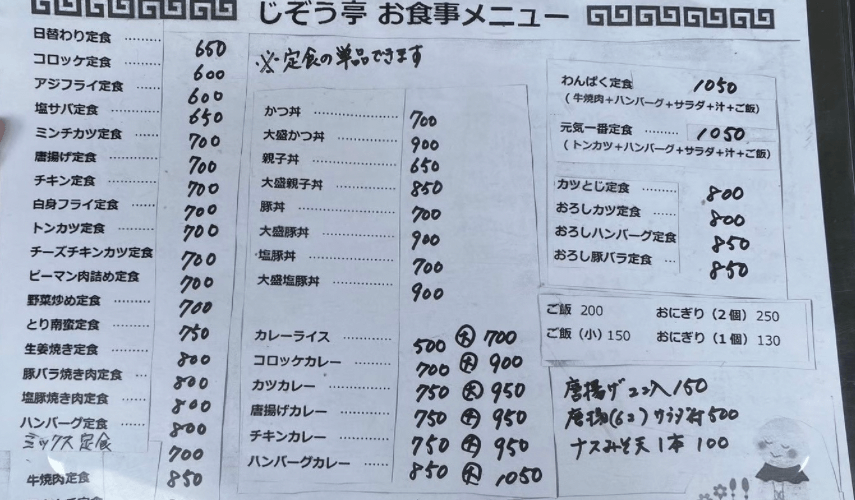 じぞう亭 お食事メニュー
日替わり定食 ……… 650
コロッケ定食 ……… 600
アジフライ定食 …… 600
塩サバ定食 ……… 650
ミンチカツ定食 …… 700
唐揚げ定食 ……… 700
チキン定食 ……… 700
白身フライ定食 …… 700
トンカツ定食 …… 700
チーズチキンカツ定食 700
ピーマン肉詰め定食 700
野菜炒め定食 …… 700
とり南蛮定食 …… 750
生姜焼き定食 …… 800
豚バラ焼き肉定食 … 800
塩豚焼き肉定食 … 800
ハンバーグ定食 …… 800
ミックス定食 700
牛焼肉定食 …… 850
※定食の単品できます
かつ丼 ……… 700
大盛かつ丼 ……… 900
親子丼 ……… 650
大盛親子丼 ……… 850
豚丼 ……… 700
大盛豚丼 ……… 900
塩豚丼 ……… 700
大盛塩豚丼 ……… 900
カレーライス ……… 500 大 700
コロッケカレー …… 700 大 900
カツカレー ……… 750 大 950
唐揚げカレー …… 750 大 950
チキンカレー …… 750 大 950
ハンバーグカレー …… 850 大 1050
わんぱく定食 1050
(牛焼肉+ハンバーグ+サラダ+汁+ご飯)
元気一番定食 ……… 1050
(トンカツ+ハンバーグ+サラダ+汁+ご飯)
カツとじ定食 …… 800
おろしカツ定食 …… 800
おろしハンバーグ定食 850
おろし豚バラ定食 …… 850
ご飯 200 おにぎり(2個) 250
ご飯(小) 150 おにぎり(1個) 130
唐揚げココ入150
唐揚(6コ)サラダ付500
ナスみそ天 1本 100